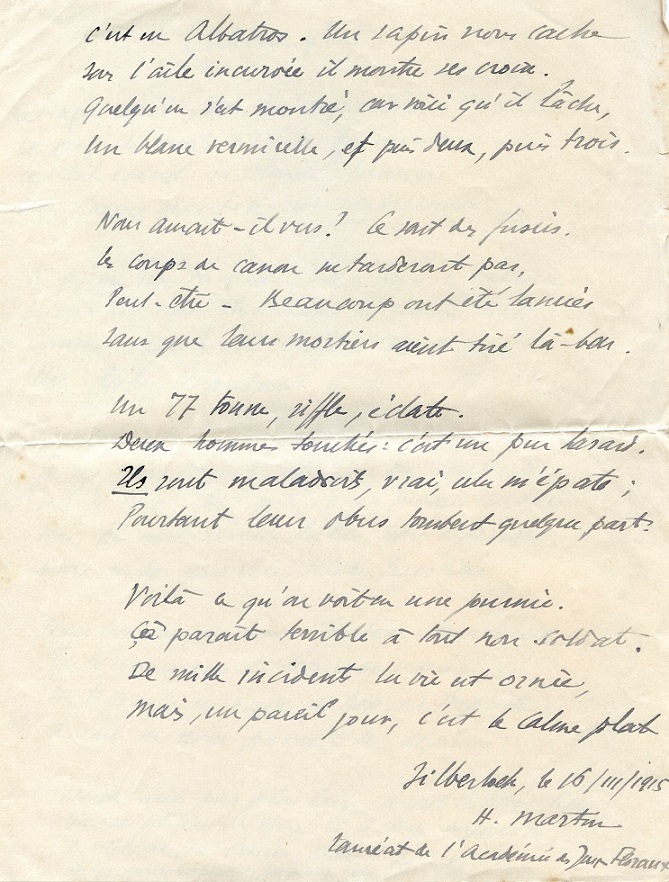 C'est un Albatros. Un sapin nous cache
Sur l'aile incurvée il montre ses croix.
Quelqu'un s'est montré, car voici qu'il lâche,
Un blanc vermicelle, et puis deux, puis trois.
Nous aurait-il vus? Ce sont des fusées.
Les coups de canon ne tarderont pas,
Peut-être - Beaucoup ont été lancées
sans que leurs mortiers aient tiré là-bas.
Un 77 tonne, siffle, éclate.
Deux hommes touchés: c'est un pur hasard.
Ils sont maladroits, vrai, cela m'épate;
Pourtant leurs obus tombent quelque part.
Voilà ce qu'on voit en une journée.
Çà paraît terrible à tout non soldat.
De mille incidents la vie est ornée,
Mais, un pareil jour, c'est le calme plat
le 16/III/1915
H. Martin
Lauréat de l'Académie des Jeux Floraux